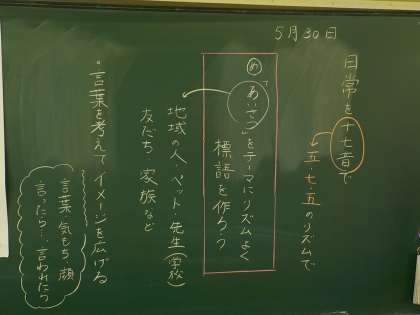 5月30日
日常を十七音で
五・七・五のリズムで
め 「あいさつ」をテーマにリズムよく
標語を作ろう
地域の人 ペット・先生(学校)
友だち 家族など
・言葉を考えてイメージを広げる
言葉 気もち 顔
言ったら…言われたら